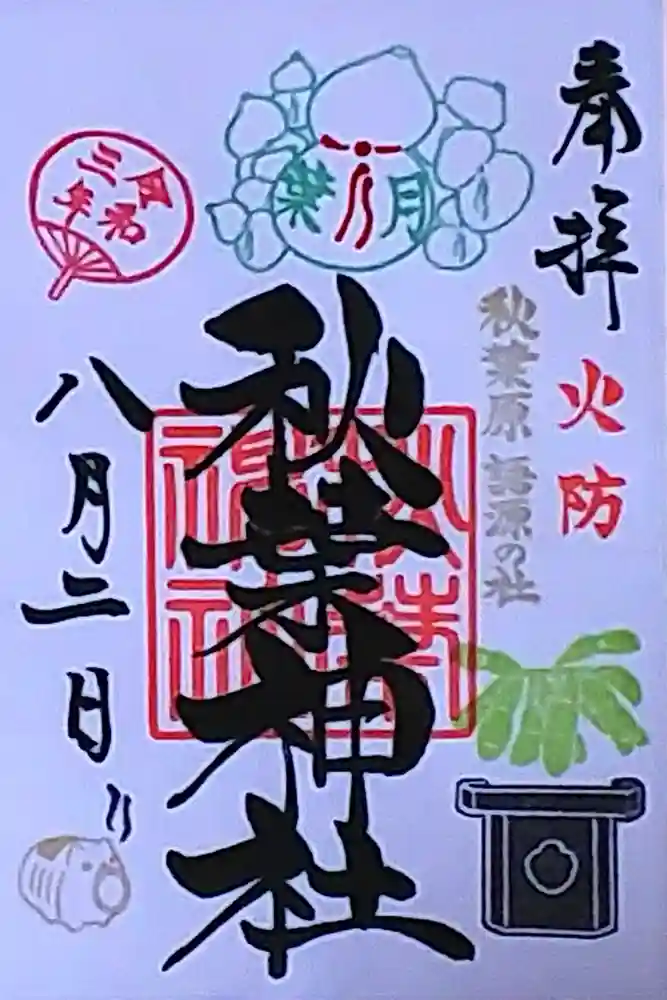 奉拝
火防
秋葉原 語源の社
葉月
秋葉神社
秋葉
神社
令和
三年
八月二日